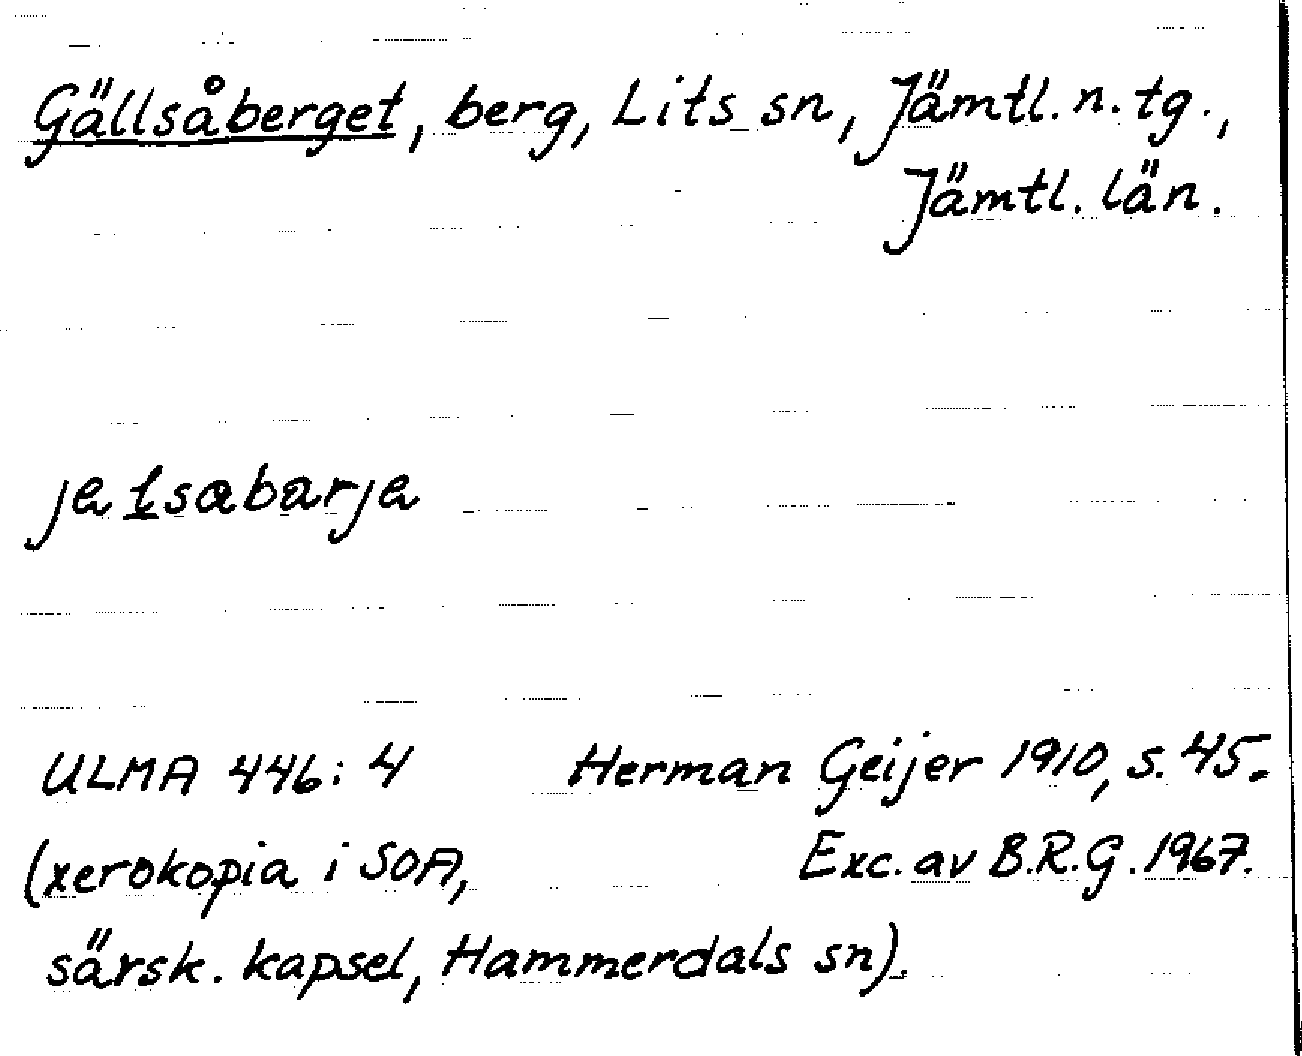 Gällsåberget, berg, Lits sn, Jämtl. n. tg.,
Jämtl. län.
ULMA 446:4 Herman Geijer 1910, s. 45.
(xerokopia i SOA, Exc. av B.R.G. 1967.
särsk. kapsel, Hammerdals sn).